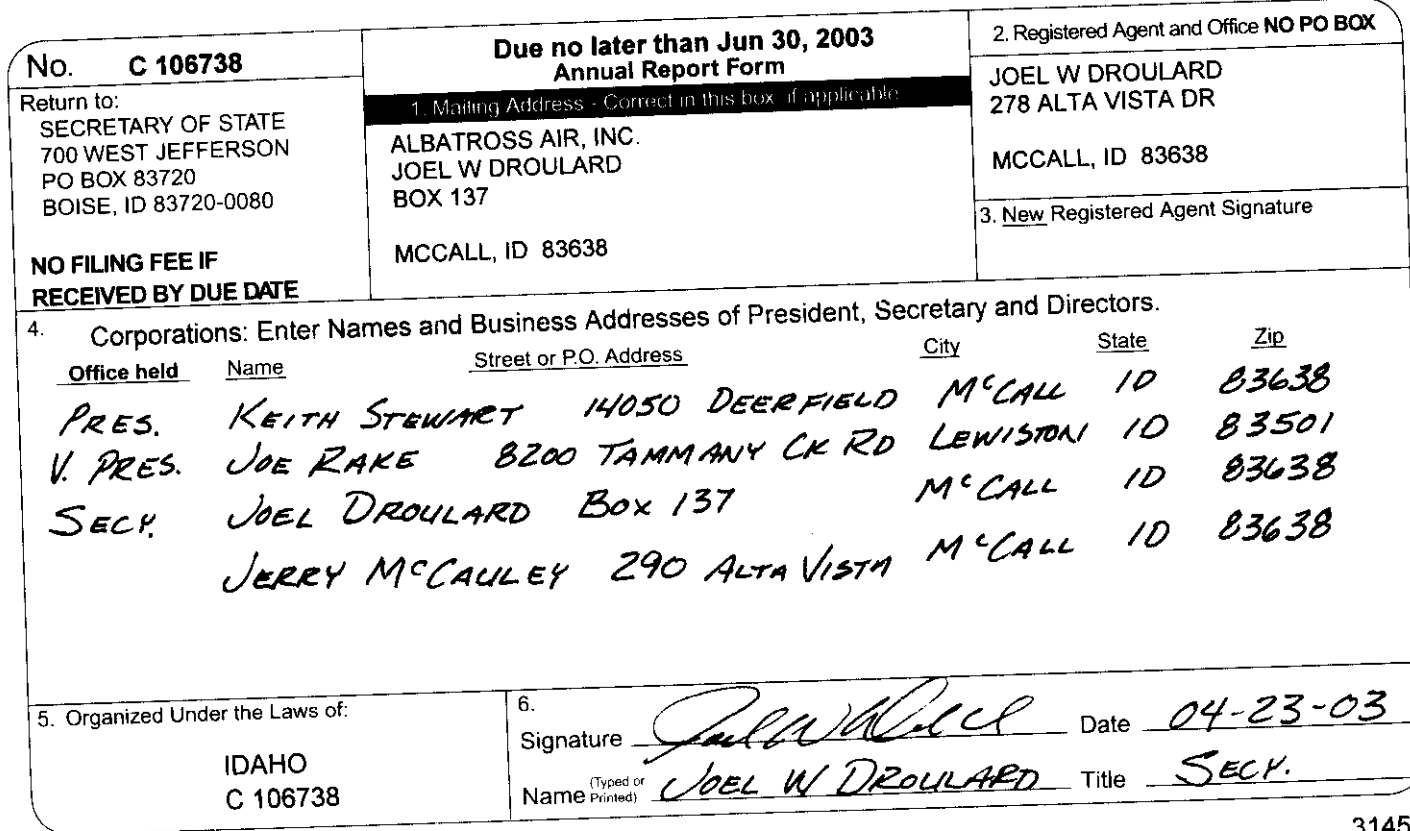 No. C 106738
Return to:
SECRETARY OF STATE
700 WEST JEFFERSON
PO BOX 83720
BOISE, ID 83720-0080
NO FILING FEE IF
RECEIVED BY DUE DATE
Due no later than Jun 30, 2003
Annual Report Form
1. Mailing Address - Correct in this box if applicable
ALBATROSS AIR, INC.
JOEL W DROULARD
BOX 137
MCCALL, ID 83638
2. Registered Agent and Office NO PO BOX
JOEL W DROULARD
278 ALTA VISTA DR
MCCALL, ID 83638
3. New Registered Agent Signature
4. Corporations: Enter Names and Business Addresses of President, Secretary and Directors.
Office held Name Street or P.O. Address City State Zip
PRES. KEITH STEWART 14050 DEERFIELD McCALL ID 83638
V. PRES. JOE RAKE 8200 TAMMANY CK RD LEWISTON ID 83501
SECY. JOEL DROULARD BOX 137 McCALL ID 83638
JERRY McCAULEY 290 ALTA VISTA McCALL ID 83638
5. Organized Under the Laws of:
IDAHO
C 106738
6.
Signature Date 04-23-03
Name (Typed or Printed) JOEL W DROULARD Title SECY.
3145